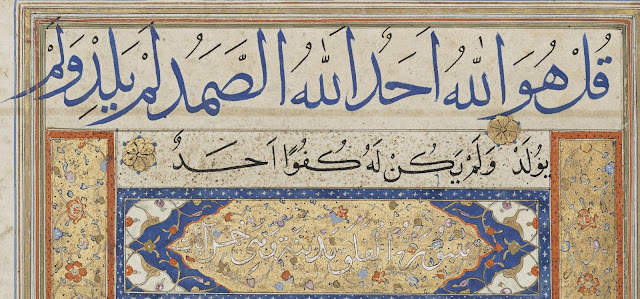 قُلْ هُوَ اللّٰهُ اَحَدٌ اَللّٰهُ الصَّمَدُ لَمْ يَلِدْ وَلَمْ
يُولَدْ وَلَمْ يَكُنْ لَهُ كُفُوًا اَحَدٌ
سورة الفلق مدنية وهي خمس آيات